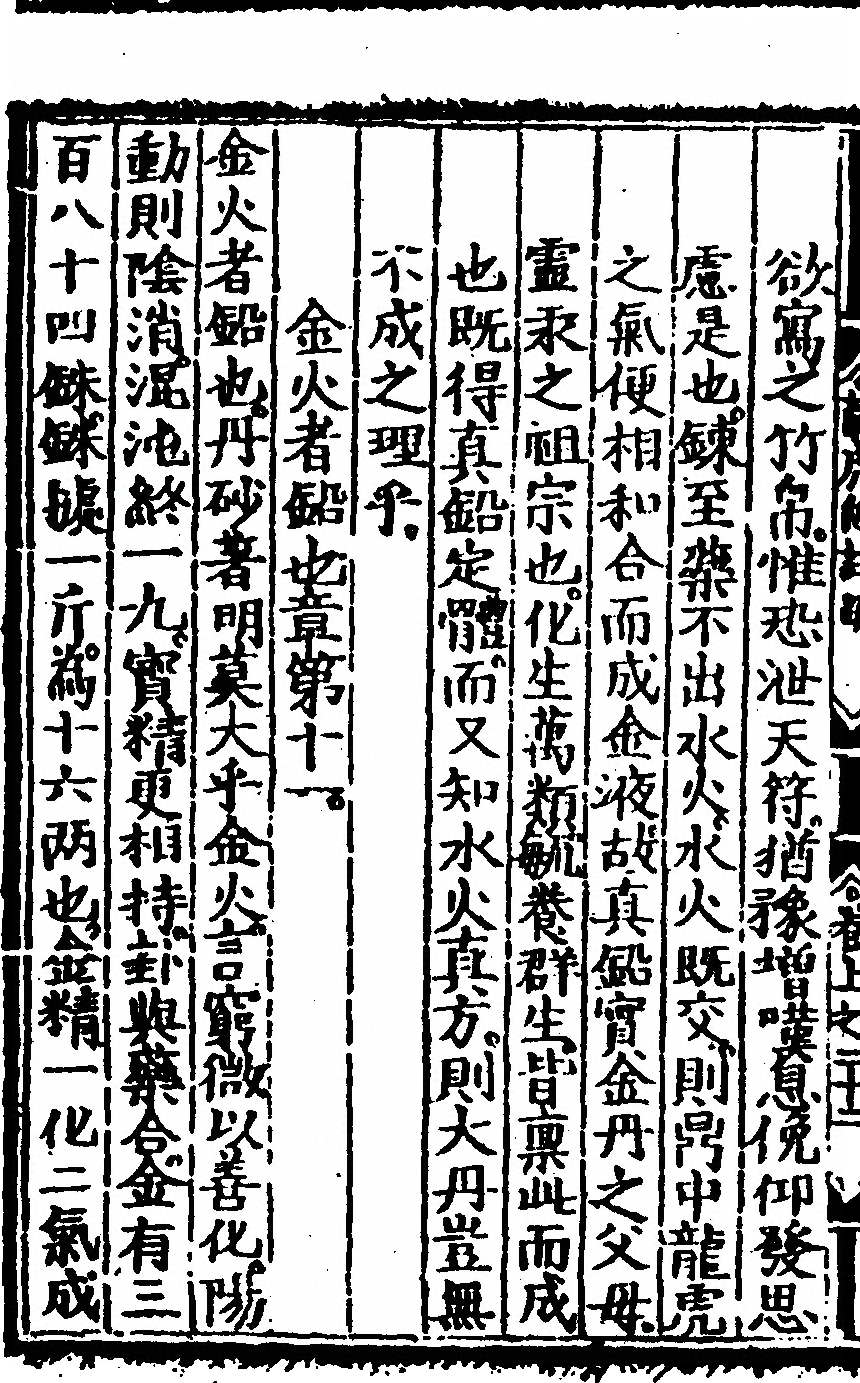 欲寫之竹帛。惟恐泄天符。猶豫增嘆息俛仰發思
慮是也。鍊至藥不出水火。水火既交。則鼎中龍虎
之氣便相和合而成金液故真鉛實金丹之父母。
靈汞之祖宗也。化生萬類毓養群生。皆禀此而成
也既得真鉛定體。而又知水火真方。則大丹豈無
不成之理乎。
金火者鉛也章第十一。
金火者鉛也。丹砂著明莫大乎金火。言窮微以善化。陽
動則陰消。混沌終一九。寳精更相持。藥與藥合。金有三
百八十四銖。銖據一斤。為十六兩也。金精一化二氣成
卷上之二十二